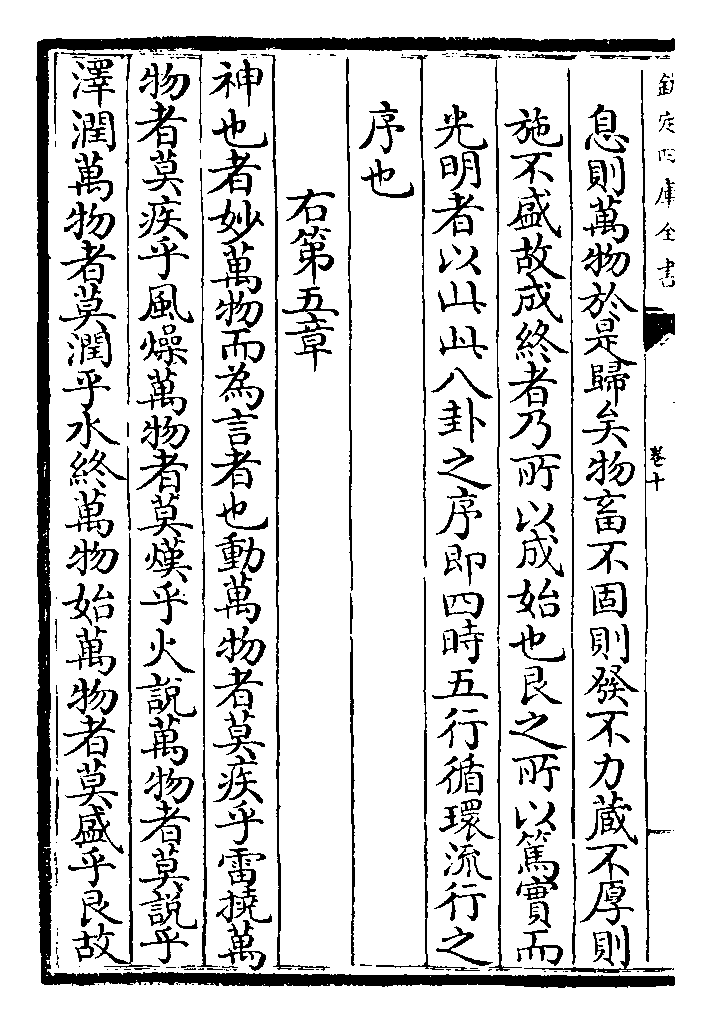 欽定四庫全書
卷十
息則萬物於是歸矣物畜不固則發不力蔵不厚則
施不盛故成終者乃所以成始也艮之所以篤實而
光明者以此此八卦之序即四時五行循環流行之
序也
右第五章
神也者妙萬物而為言者也動萬物者莫疾乎雷撓萬
物者莫疾乎風燥萬物者莫熯乎火說萬物者莫說乎
澤潤萬物者莫潤乎水終萬物始萬物者莫盛乎艮故